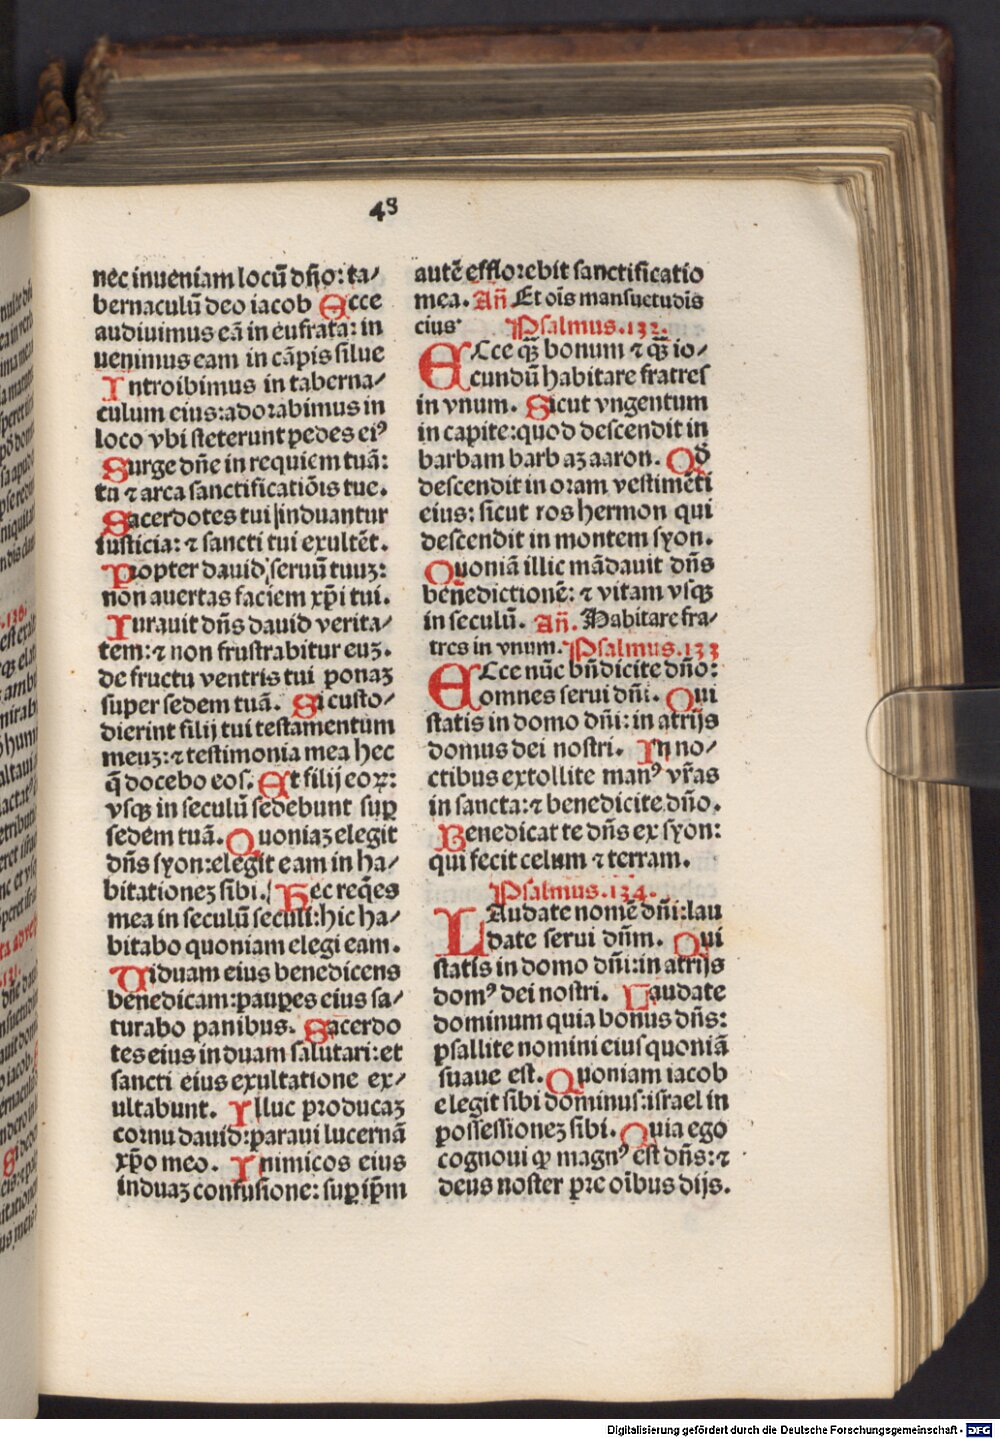 48
nec inueniam locū dn̄o: ta/
bernaculū deo iacob Ecce
audiuimus eā in eufrata: in
uenimus eam in cāpis silue
Introibimus in taberna/
culum eius: adorabimus in
loco vbi steterunt pedes eiꝰ
Surge dn̄e in requiem tuā:
tu ⁊ arca sanctificatiōis tue.
Sacerdotes tui induantur
iusticia: ⁊ sancti tui exultēt.
Propter dauid seruū tuuꝫ:
non auertas faciem xp̄i tui.
Iurauit dn̄s dauid verita/
tem: ⁊ non frustrabitur euꝫ.
de fructu ventris tui ponaꝫ
super sedem tuā. Si custo/
dierint filij tui testamentum
meuꝫ: ⁊ testimonia mea hec
q̄ docebo eos. Et filij eoꝝ:
vsqꝫ in seculū sedebunt suꝑ
sedem tuā. Quoniaꝫ elegit
dn̄s syon: elegit eam in ha/
bitationeꝫ sibi. Hec reqēs
mea in seculū seculi: hic ha/
bitabo quoniam elegi eam.
Viduam eius benedicens
benedicam: pauꝑes eius sa/
turabo panibus. Sacerdo
tes eius induam salutari: et
sancti eius exultatione ex/
ultabunt. Illuc producaꝫ
cornu dauid: paraui lucernā
xp̄o meo. Inimicos eius
induaꝫ confusione: suꝑ ip̄m
autē efflorebit sanctificatio
mea. Añ Et oīs mansuetudīs
eius. Psalmus .132.
ECce qꝫ̄ bonum ⁊ qꝫ̄ io/
cundū habitare fratres
in vnum. Sicut vngentum
in capite: quod descendit in
barbam barbaꝫ aaron. Qd̄
descendit in oram vestimēti
eius: sicut ros hermon qui
descendit in montem syon.
Quoniā illic mādauit dn̄s
benedictionē: ⁊ vitam vsqꝫ
in seculū. Añ. Habitare fra/
tres in vnum. Psalmus .133
ECce nūc bn̄dicite dn̄o:
omnes serui dn̄i. Qui
statis in domo dn̄i: in atrijs
domus dei nostri. In no/
ctibus extollite manꝰ vr̄as
in sancta: ⁊ benedicite dn̄o.
Benedicat te dn̄s ex syon:
qui fecit celum ⁊ terram.
Psalmus .134.
LAudate nomē dn̄i: lau
date serui dn̄m. Qui
statis in domo dn̄i: in atrijs
domꝰ dei nostri. Laudate
dominum quia bonus dn̄s:
psallite nomini eius quoniā
suaue est. Quoniam iacob
elegit sibi dominus: israel in
possessioneꝫ sibi. Quia ego
cognoui ꝙ magnꝰ est dn̄s: ⁊
deus noster pre oībus dijs.
Digitalisierung gefördert durch die Deutsche Forschungsgemeinschaft - DFG